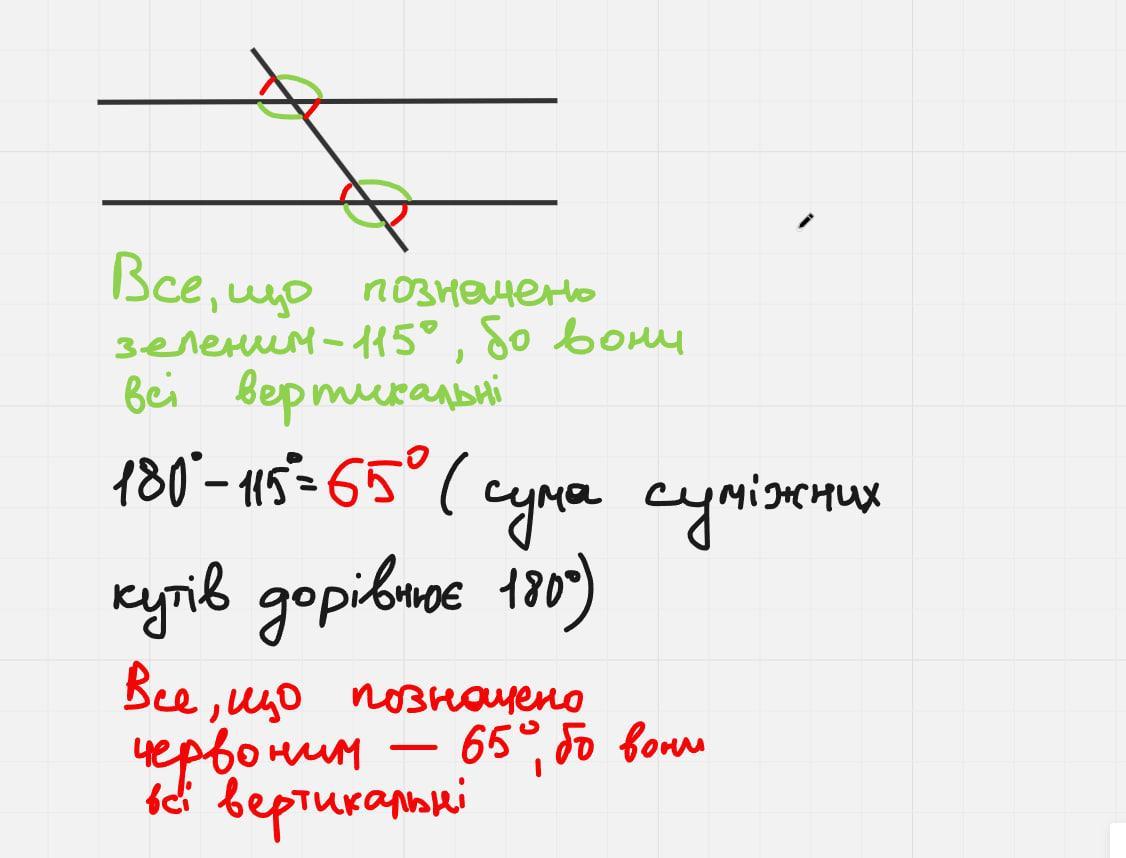 Все, що позначено
зеленим - 115°, бо вони
всі вертикальні
180° - 115° = 65° (сума суміжних
кутів дорівнює 180°)
Все, що позначено
червоним — 65°, бо вони
всі вертикальні